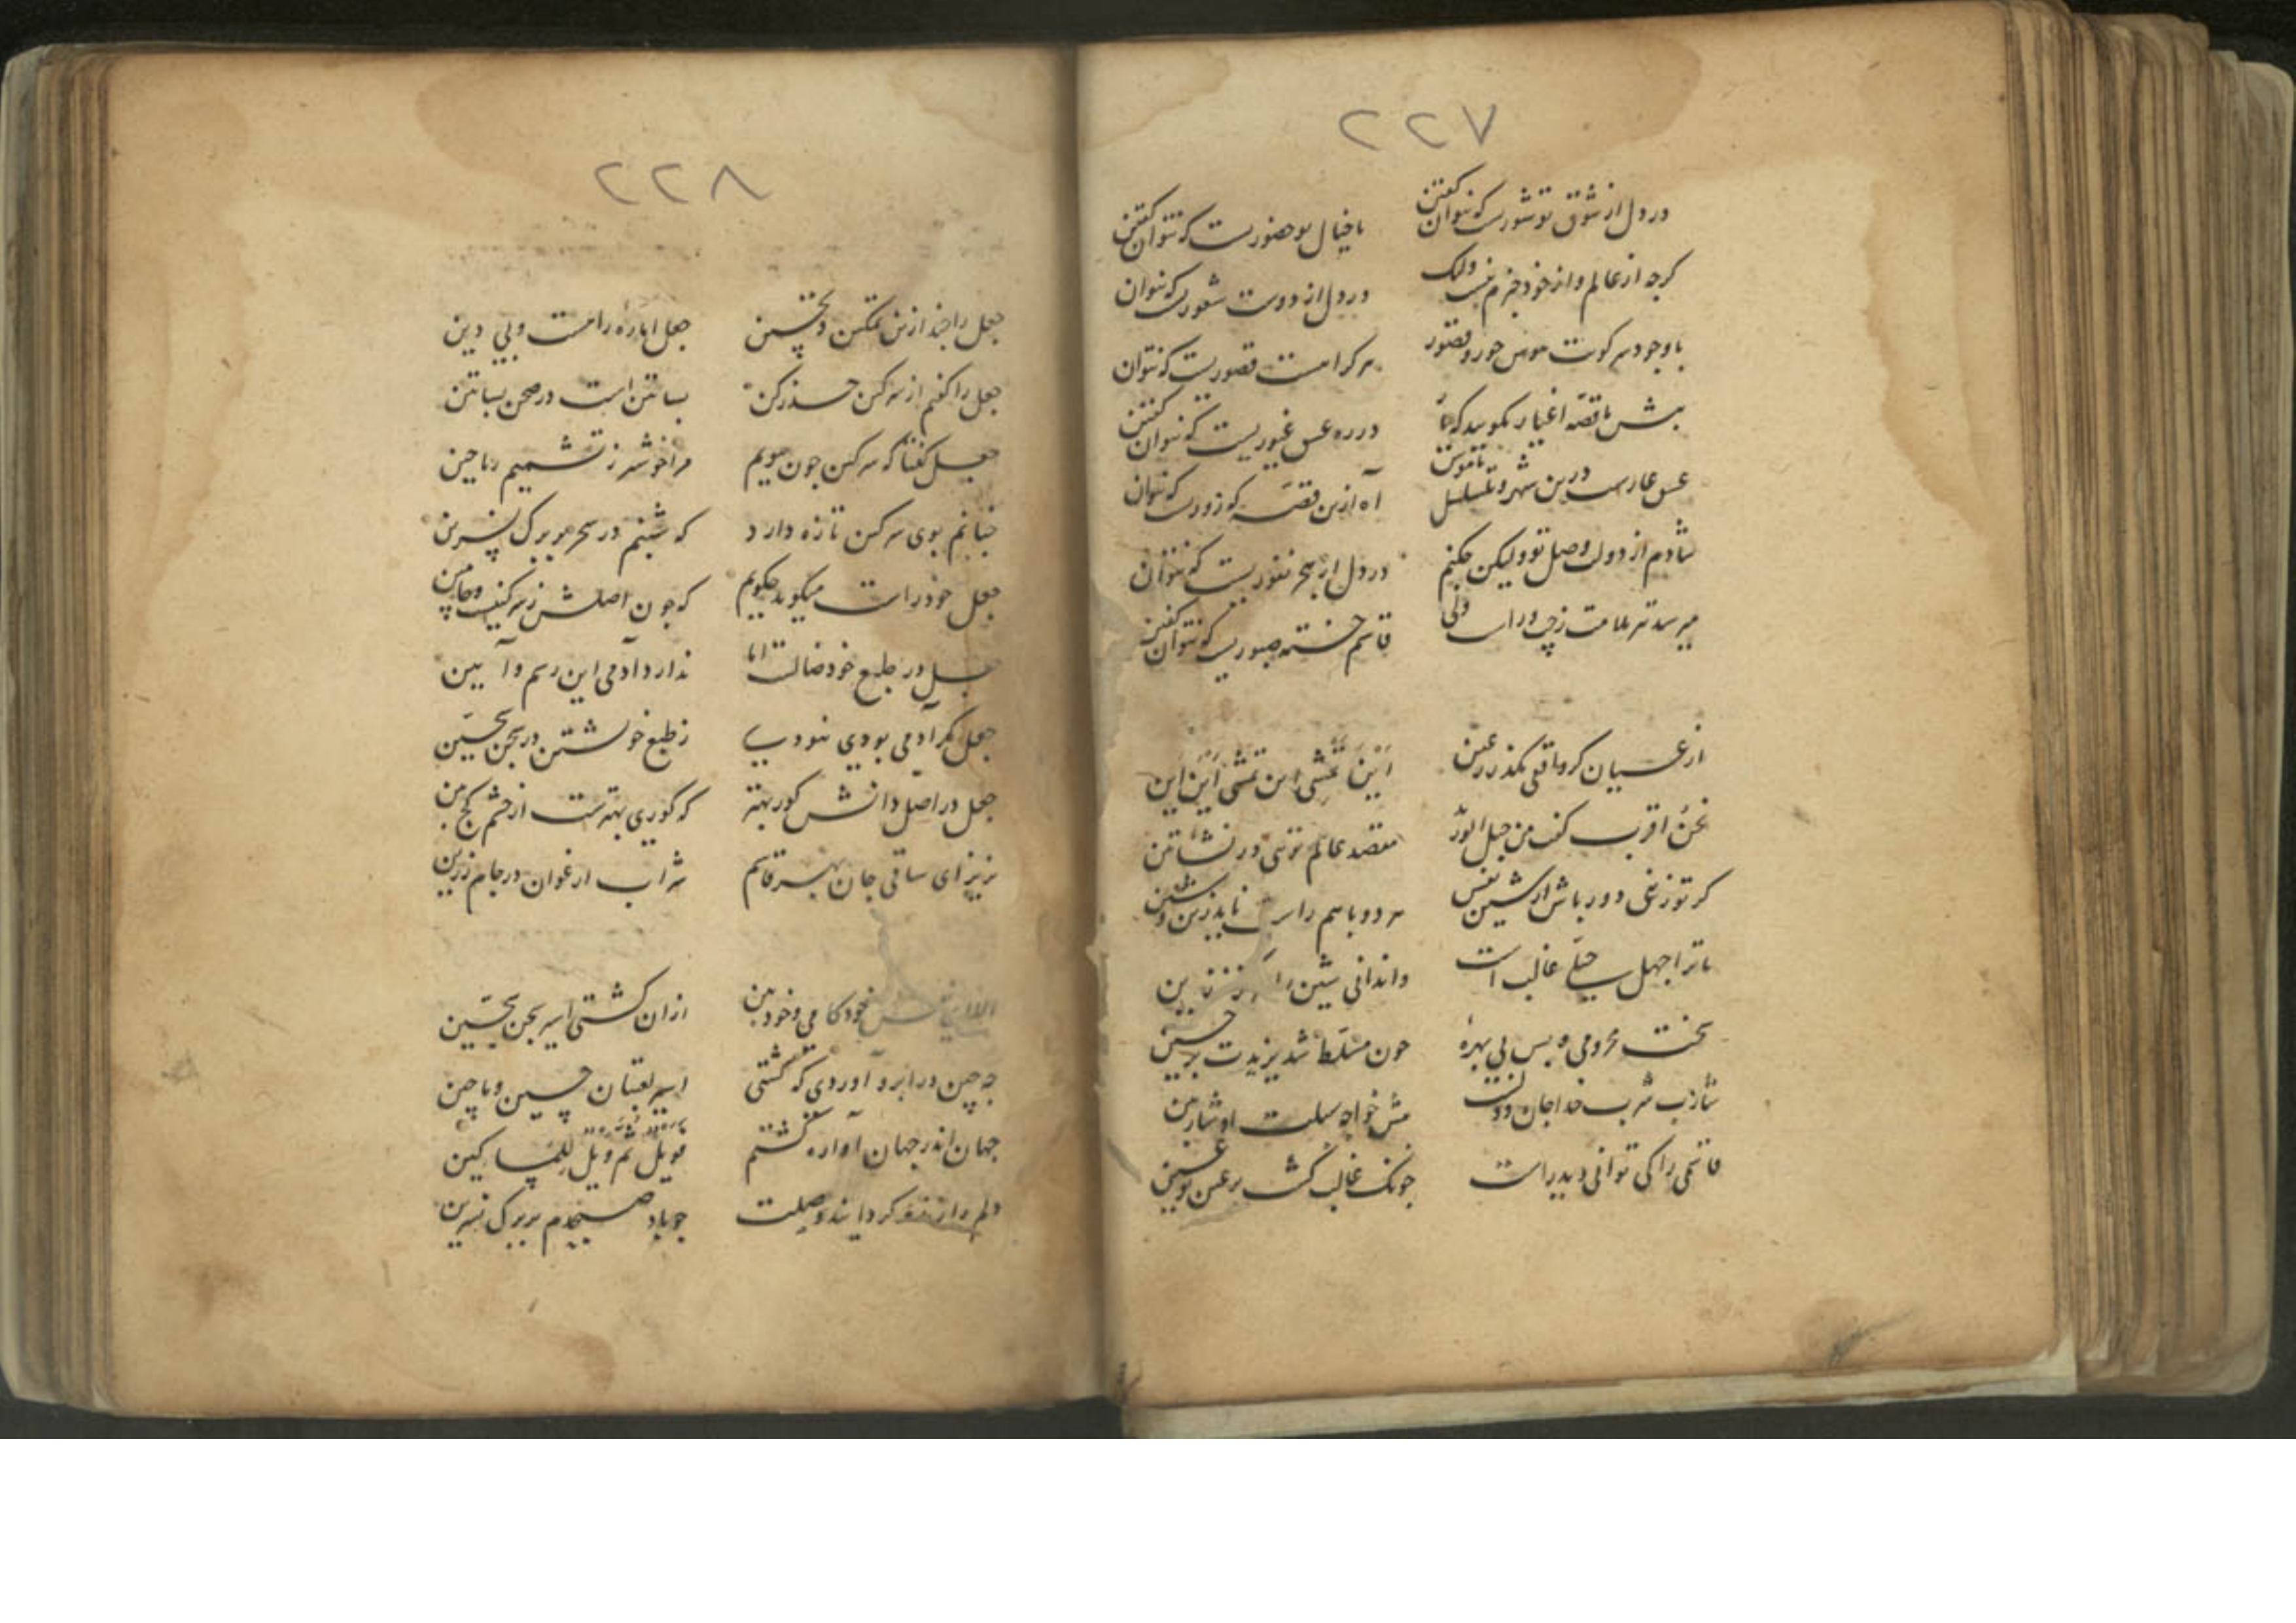 ۲۲۷
در دل از شوق تو شوریست که نتوان گفتن با خیال تو حضوریست که نتوان گفتن
کرچه از عالم و از خود خبرم نیست ولیک در دل از دوست شعوریست که نتوان
با وجود سر کویت هوس حور و قصور هر کرا هست قصوریست که نتوان
پیش ما قصه اغیار مکویید که ما در ره عشق غیوریست که نتوان گفتن
درین شهر و تسلسل ناموس آه ازین قصه که زوریست که نتوان
شادم از دولت وصل تو ولیکن چکنم در دل از هجر نفوریست که نتوان
میرسد تیر ملامت ز چپ و راست ولی قاسم خسته صبوریست که نتوان گفتن
از عیان کر واقفی بکذر ز عین این تمشی این تمشی این این
نحن اقرب گفت من حبل الورید مقصد عالم تویی در نشاتین
کر تو زینی دور باش از شین نفس هر دو با هم راست ناید زین و شین
تا ترا جهل جبلی غالب است وا ندانی شین را از زین
سخت محرومی و بس بی بهره چون مسلط شد یزیدت بر حسین
قاسمی را کی توانی دید راست چونک غالب کشت بر عین تو غین
۲۲۸
جعل را چند ازین تمکین و تحسین جعل اماره را مست و بی دین
جعل را کفتم از سرکین حذر کن بساتین است در صحن بساتین
جعل کفتا که سرکین چون ببویم مرا خوشتر ز تشمیم ریاحین
چنانم بوی سرکین تازه دارد که شبنم در سحر بر برک نسرین
جعل خود راست میکوید چکویم که چون اصلش ز سرکینست و چامین
جعل در طبع خود ضالست اما ندارد آدمی این رسم و آیین
جعل کر آدمی بودی نبودی ز طبع خویشتن در سجن سجین
جعل در اصل دانش کور بهتر که کوری بهترست از چشم کج بین
بریز ای ساقی جان بهر قاسم شراب ارغوان در جام زرین
خودکامی و خودبین ازان کشتی اسیر سجن سجین
چه چین در ابرو آوردی که کشتی اسیر لعبتان چین و ماچین
جهان اندر جهان آواره کشتم فویل ثم ویل للمساکین
دلم را تازه کردانید وصلت چو باد صبحدم بر برک نسرین